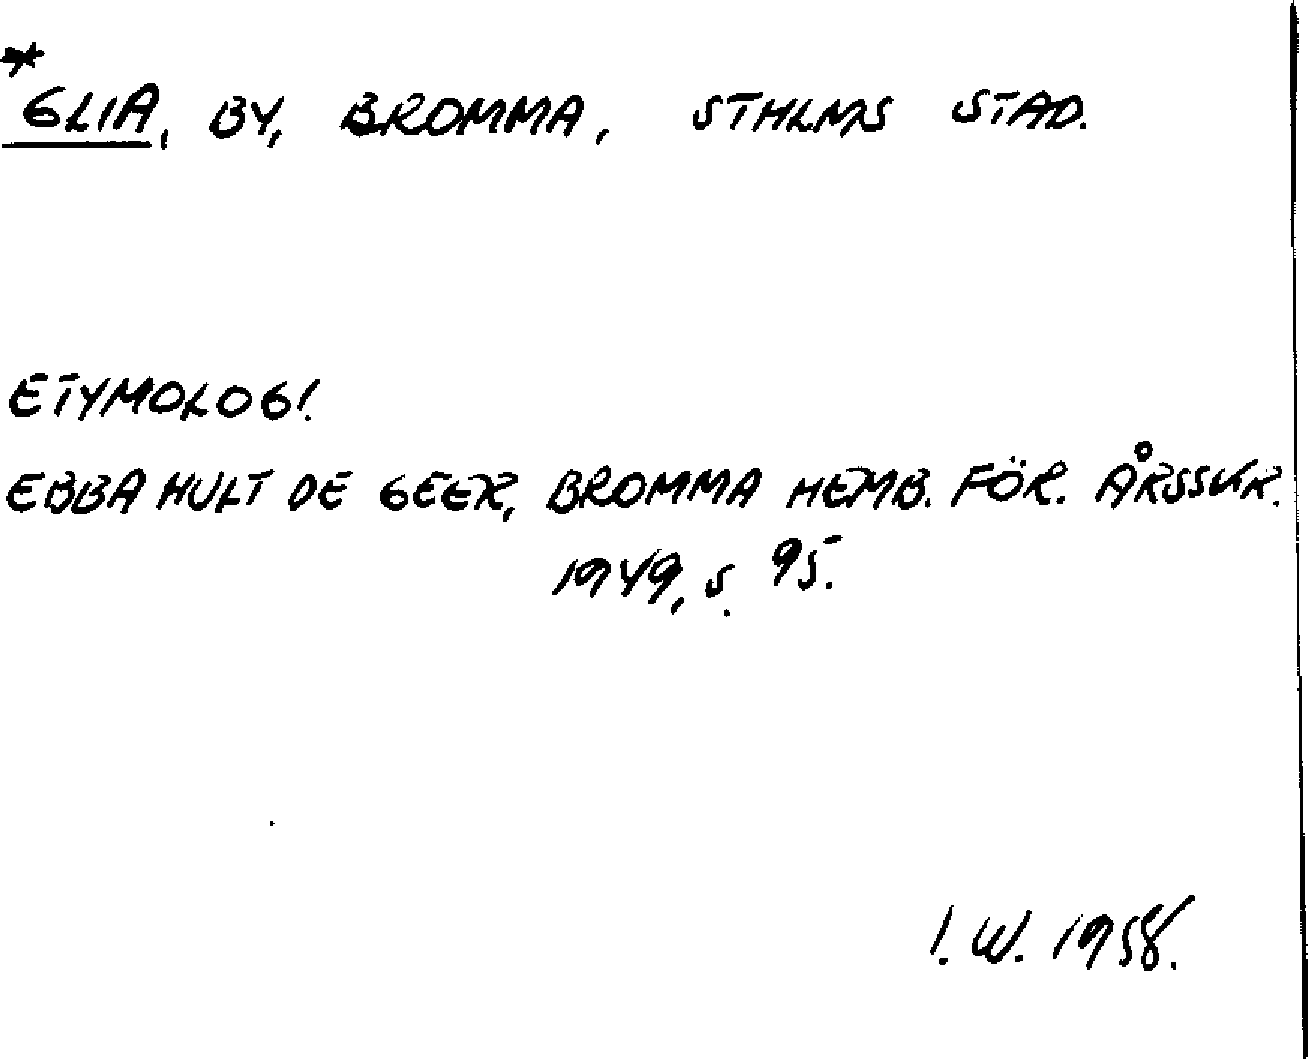 *GLIA, BY, BROMMA, STHLMS STAD.
ETYMOLOGI.
EBBA HULT DE GEER, BROMMA HEMB. FÖR. ÅRSSKR.
1949, S. 95.
I. W. 1958.